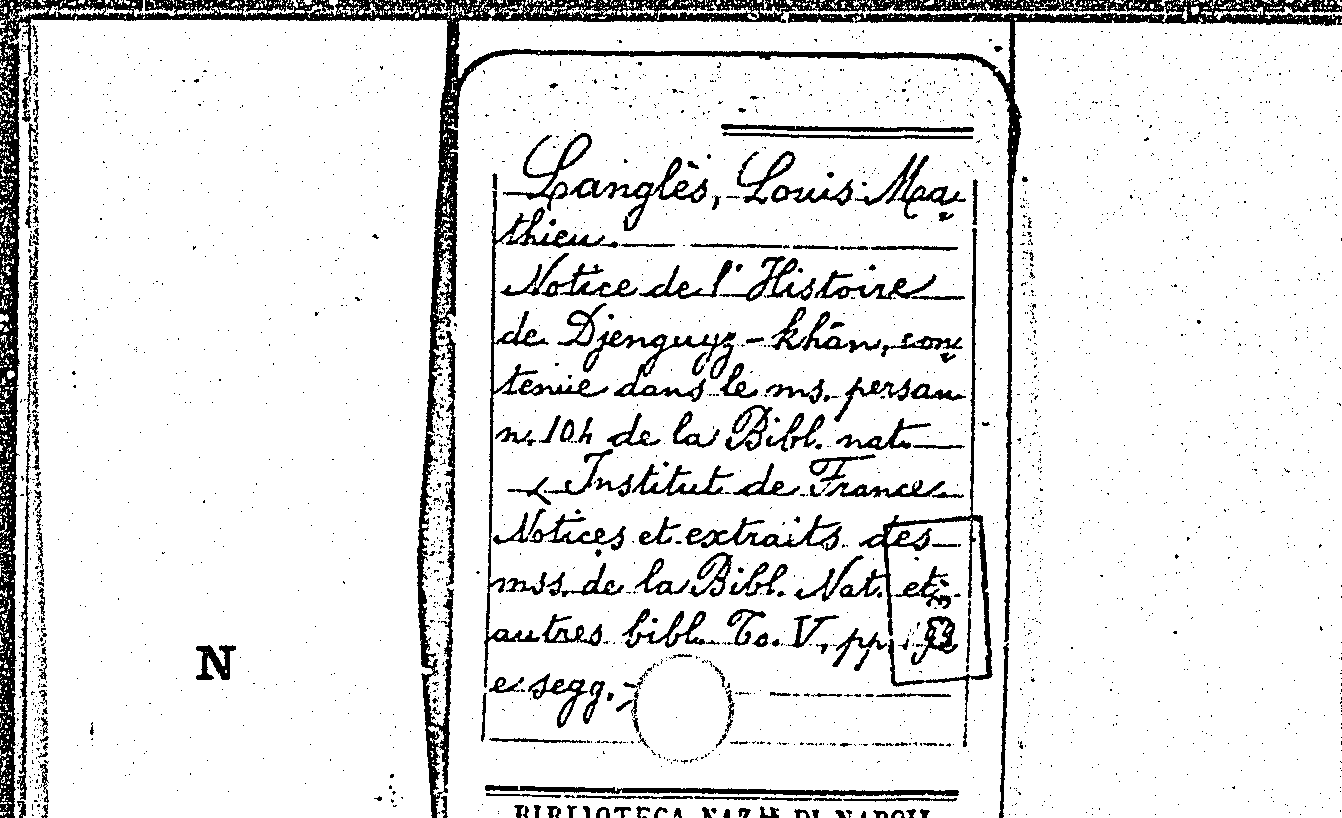 Langlès, Louis Ma-
thieu.
Notice de l'Histoire
de Djenguyz-khân, con-
tenue dans le ms. persan
n. 104 de la Bibl. nat.
(Institut de France.
Notices et extraits des
mss. de la Bibl. Nat. et
autres bibl. To. V, pp.
e segg.
N
BIBLIOTECA NAZLE DI NAPOLI